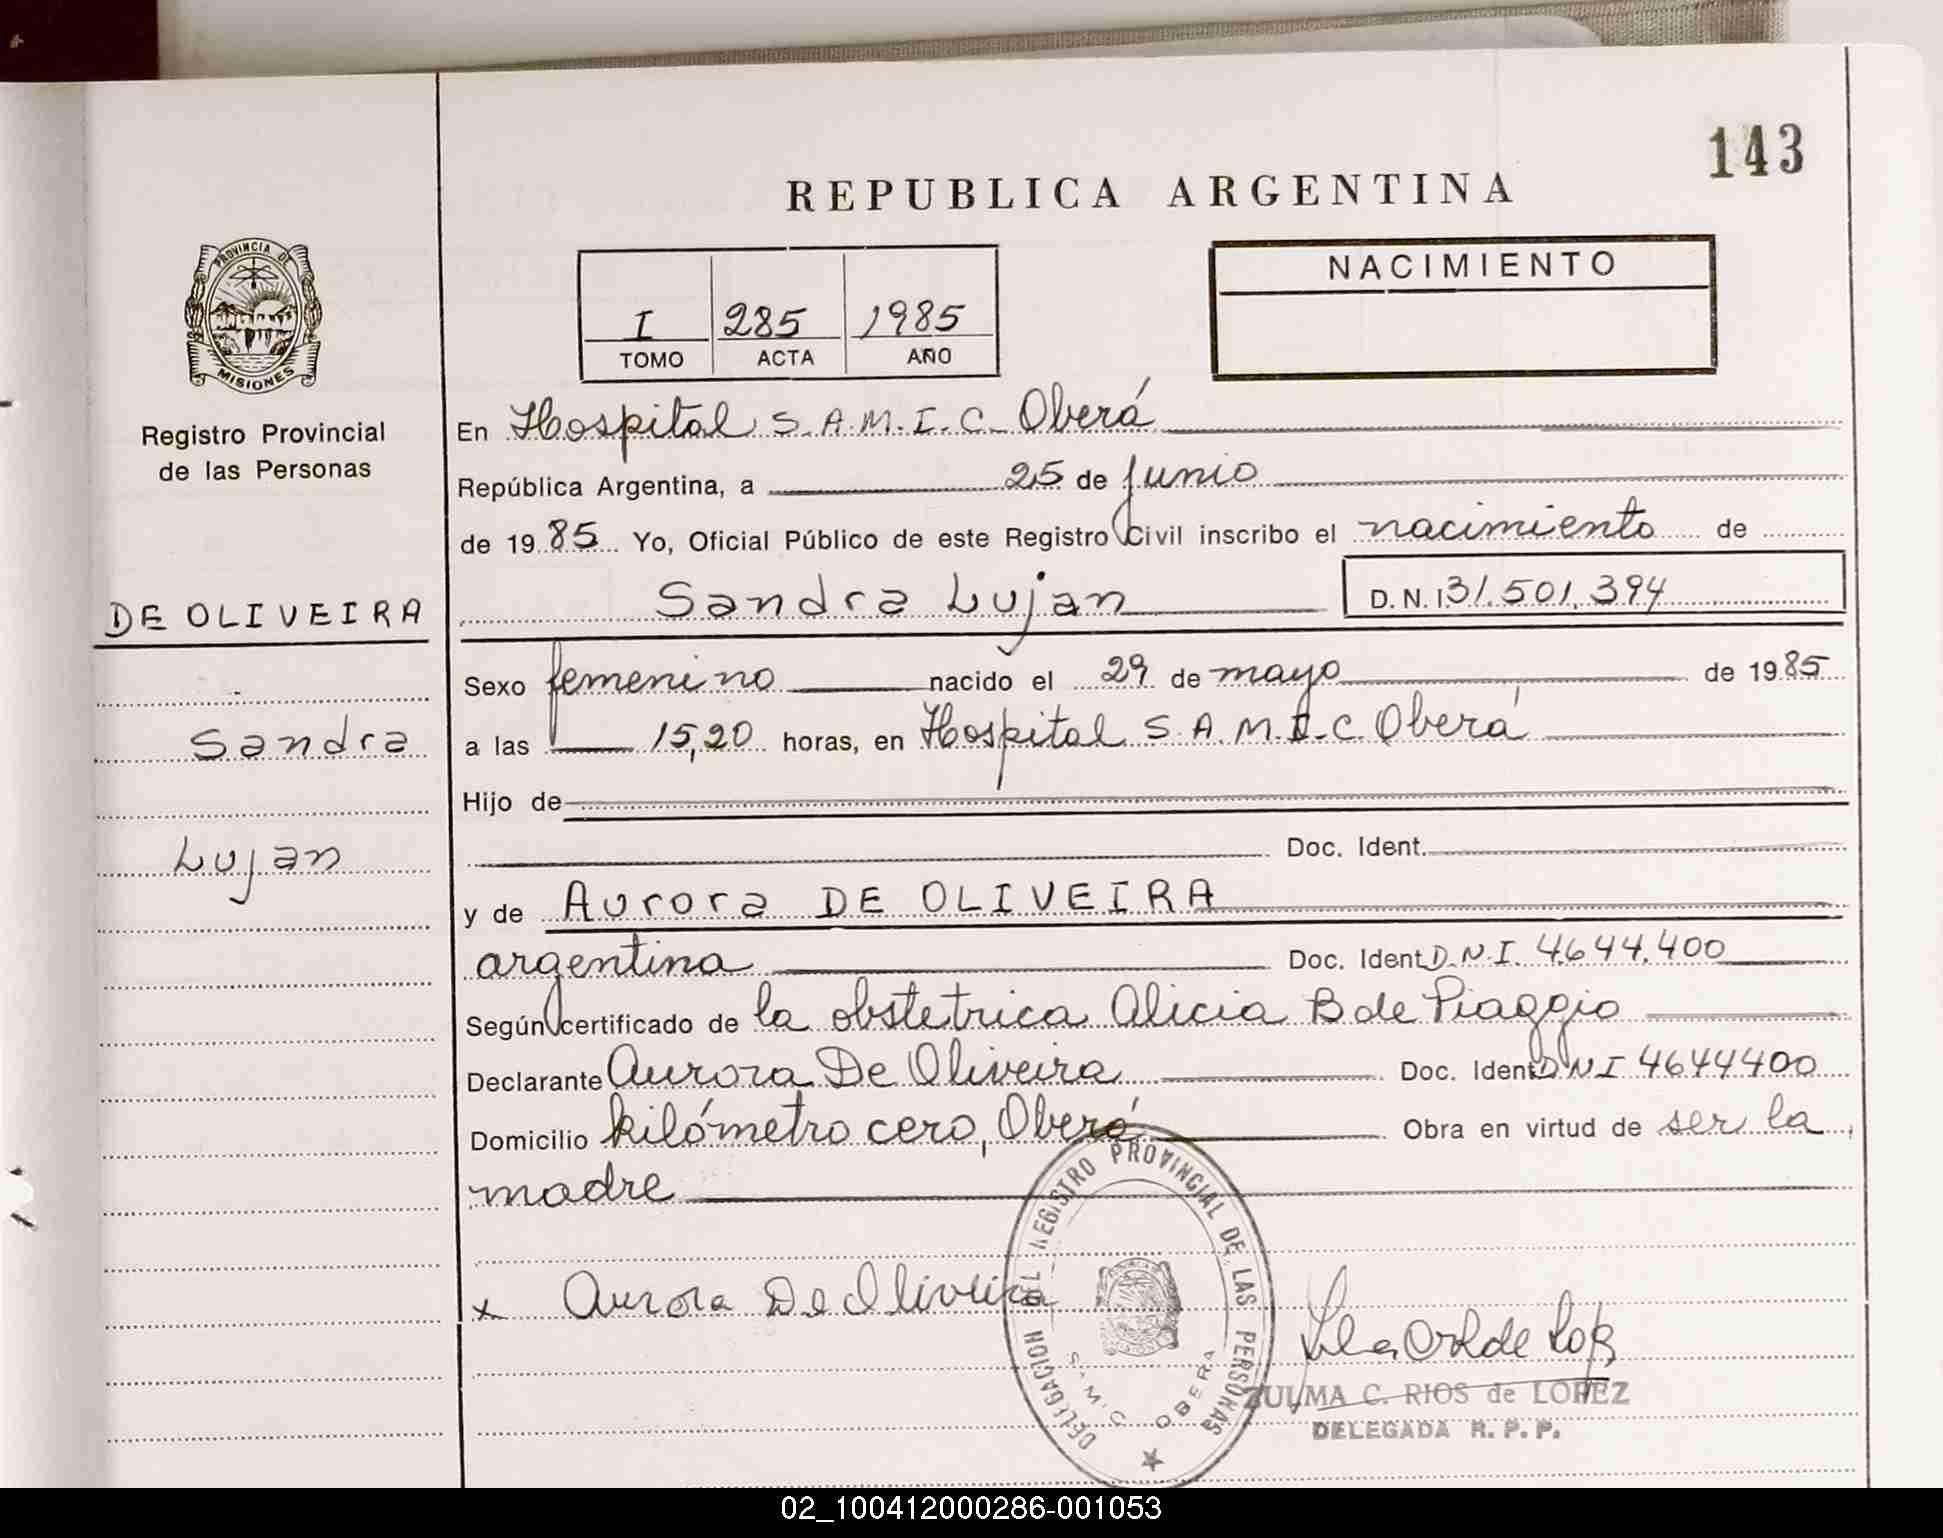 143
REPUBLICA ARGENTINA
PROVINCIA DE
MISIONES
Registro Provincial
de las Personas
I 285 1985
TOMO ACTA AÑO
NACIMIENTO
En Hospital S.A.M.I.C. Oberá
República Argentina, a 25 de Junio
de 1985 Yo, Oficial Público de este Registro Civil inscribo el nacimiento de
Sandra Lujan D.N.I. 31.501.394
DE OLIVEIRA
Sandra
Lujan
Sexo femenino nacido el 29 de mayo de 1985
a las 15,20 horas, en Hospital S.A.M.I.C. Oberá
Hijo de
Doc. Ident.
y de Aurora DE OLIVEIRA
argentina Doc. Ident D.N.I. 4644.400
Según certificado de la obstetrica Alicia B de Piaggio
Declarante Aurora De Oliveira Doc. Ident DNI 4644400
Domicilio kilómetro cero, Oberá Obra en virtud de ser la
madre
x Aurora De Oliveira
DELEGACION DEL REGISTRO PROVINCIAL DE LAS PERSONAS
S.A.M.I.C. OBERA
ZULMA C. RIOS de LOPEZ
DELEGADA R.P.P.
02_100412000286-001053